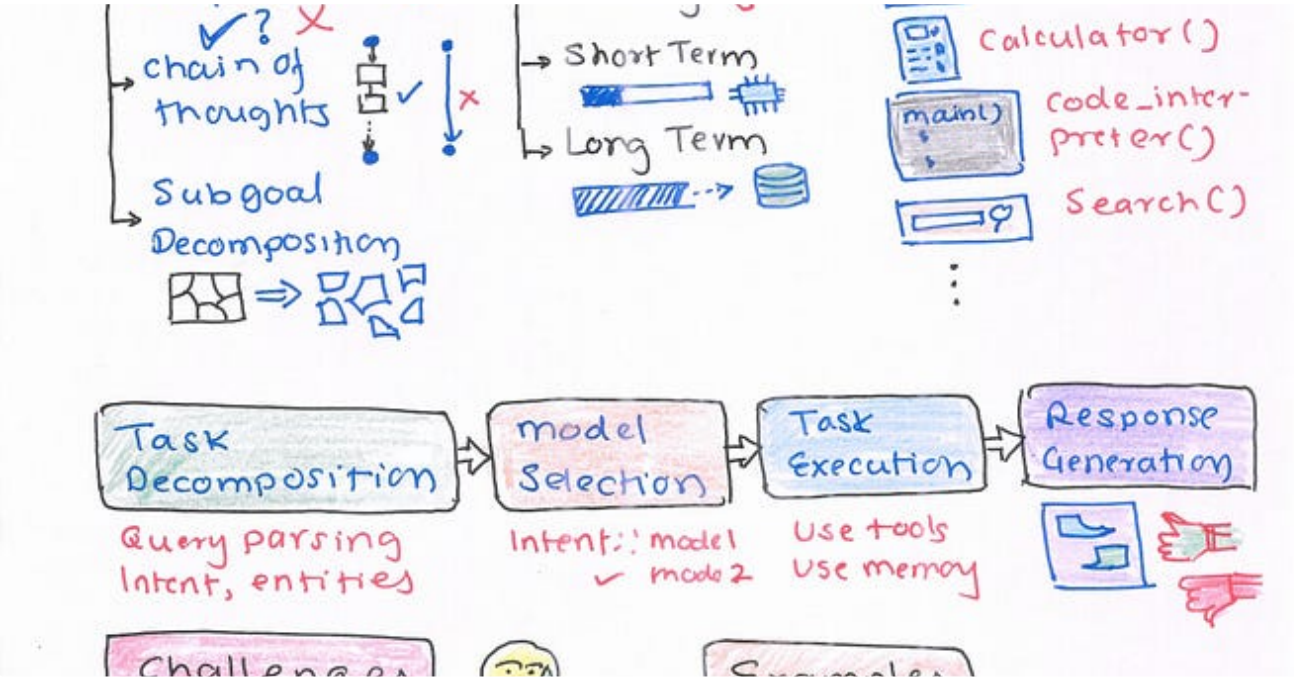 ✓? ✗
chain of
thoughts
Subgoal
Decomposition
Short Term
Long Term
Calculator()
main()
code_inter-
preter()
Search()
Task
Decomposition
Query parsing
Intent, entities
model
Selection
Intent:: model
✓ mode2
Task
Execution
Use tools
Use memoy
Response
Generation
Challenges
Examples